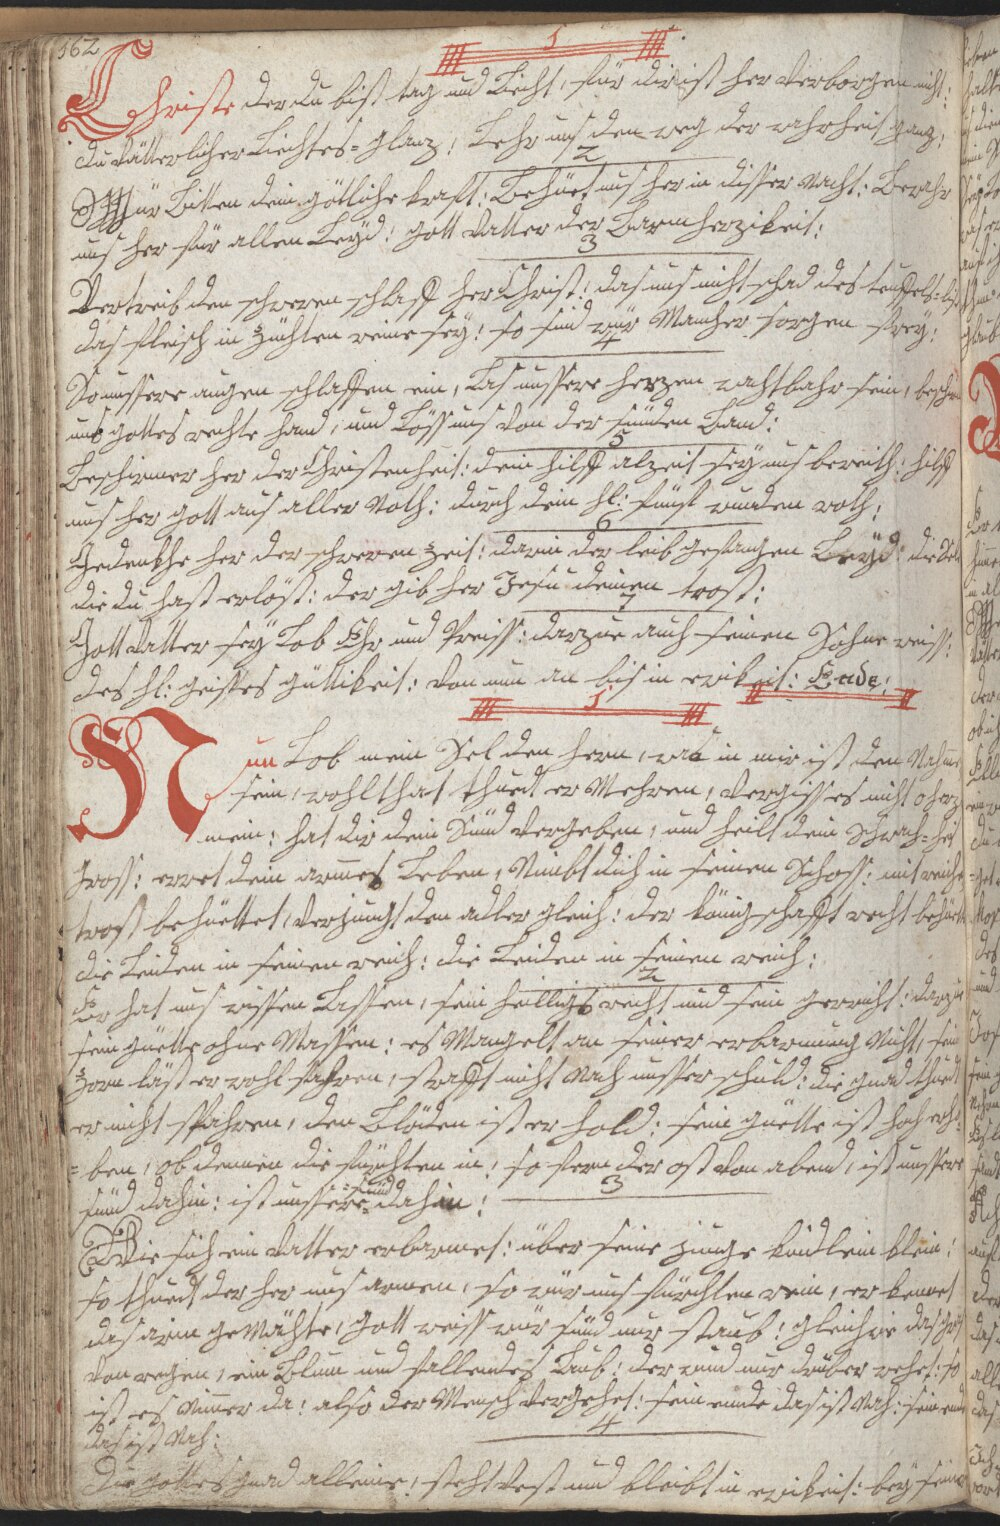 162
1
Christe der du bist tag und Liecht, für dir ist her verborgen nicht:
du vätterlicher Liechtes=glanz, Lehr uns den weg der wahrheit ganz:
2
Wür Bitten dein göttliche kraft: Behüet uns her in disser Nacht: Bewahr
uns her für allem Leyd: gott Vatter der Barmherzikeit:
3
Vertreib den schweren schlaff her Christ: das uns nicht schad des teuffels=list
das fleisch in züchten reine sey: so sind wür Mancher sorgen frey:
4
So unssere augen schlaffen ein, Las unssere herzen wachtbahr sein,
uns gottes rechte hand, und Löss uns von der sünden Band:
5
Beschirmer her der Christenheit: dein hilff alzeit sey uns bereith: hilff
uns her gott aus aller Noth: durch dein hl: fünff wunden roth:
6
Gedenkhe her der schweren zeit: darin der leib gefangen Leyd: die Sel
die du hast erlöst: der gib her Jesu deinen trost:
7
Gott Vatter sey Lob Ehr und Preiss: darzue auch seinen Sohne weiss:
des hl: geistes güttikeit: von nun an bis in ewikeit: Ende:
1
Nun Lob mein Sel den hern, was in mir ist den Nahme
sein, wohlthat thuedt er Mehren, vergiss es nicht o herz
mein: hat dir dein Sünd vergeben, und heilt dein Schwach=heit
gross: erret dein armes Leben, Nimbt dich in seinen Schoss: mit reichen
trost behüettet, verjüngt dem adler gleich: der könig schafft recht behüett
die Leiden in seinen reich: die Leiden in seinen reich:
2
Er hat uns wissen Lassen, sein heilligs recht und sein gericht: darzue
sein güette ohne Massen: es Mangelt an seiner erbarmung Nicht, sein
zorn läst er wohl fahren, strafft nicht Nach unsser schuld: die gnad thuedt
er nicht spahren, den Blöden ist er hold: sein güette ist hoch erho=
=ben, ob denen die fürchten in, so fern der ost von abend, ist unssere
sünd dahin: ist unssere=sünd dahin:
3
Wie sich ein Vatter erbarmet: über seine junge kindlein klein:
so thuedt der her uns armen, so wür uns fürchten rein, er kennet
das arm geMächte, gott weiss wür sind nur staub: gleich wie das gras
von regen, ein Blum und fallendes Laub: der wind nur drüber wehet: so
ist es Nimer da: also der Mensch vergehet: sein ende das ist Nah: sein ende
das ist Nah:
4
Die gottes gnad alleine, steht vest und bleibt in ewikeit: bey seiner